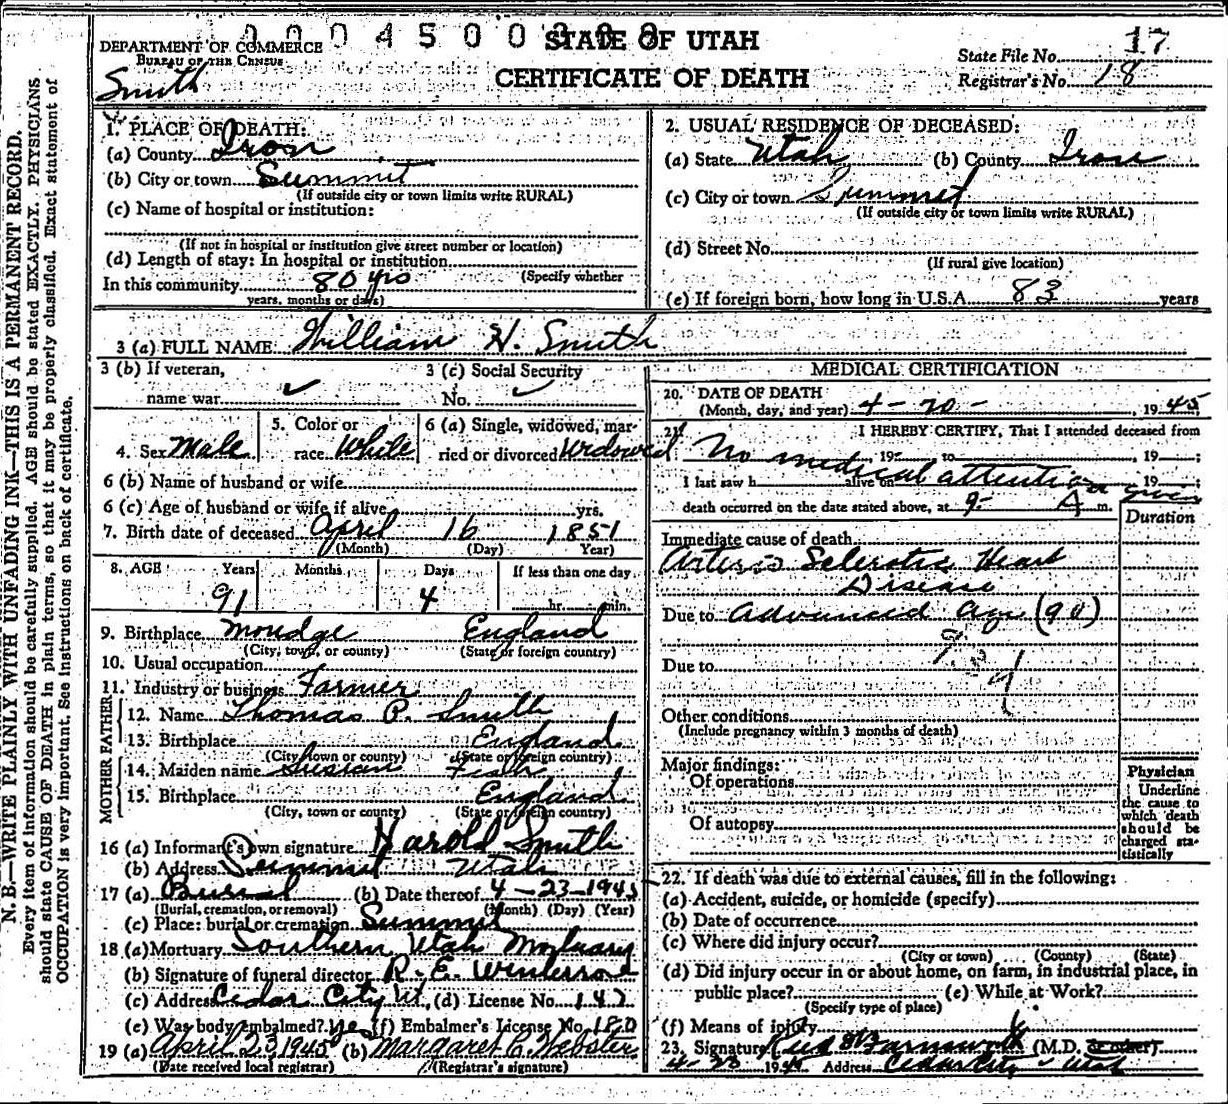 N. B.—WRITE PLAINLY WITH UNFADING INK—THIS IS A PERMANENT RECORD.
Every item of information should be carefully supplied. AGE should be stated EXACTLY. PHYSICIANS
should state CAUSE OF DEATH in plain terms, so that it may be properly classified. Exact statement of
OCCUPATION is very important. See instructions on back of certificate.
DEPARTMENT OF COMMERCE
BUREAU OF THE CENSUS
Smith
STATE OF UTAH
CERTIFICATE OF DEATH
State File No. 17
Registrar's No. 18
1. PLACE OF DEATH:
(a) County Iron
(b) City or town Summit
(If outside city or town limits write RURAL)
(c) Name of hospital or institution:
(If not in hospital or institution give street number or location)
(d) Length of stay: In hospital or institution
(Specify whether
In this community 80 yrs
years, months or days)
2. USUAL RESIDENCE OF DECEASED:
(a) State Utah (b) County Iron
(c) City or town Summit
(If outside city or town limits write RURAL)
(d) Street No.
(If rural give location)
(e) If foreign born, how long in U.S.A. 83 years
3 (a) FULL NAME William H. Smith
3 (b) If veteran,
name war
3 (c) Social Security
No.
4. Sex Male
5. Color or
race White
6 (a) Single, widowed, mar-
ried or divorced Widowed
6 (b) Name of husband or wife
6 (c) Age of husband or wife if alive yrs.
7. Birth date of deceased April 16 1851
(Month) (Day) Year)
8. AGE Years Months Days If less than one day
91 4 hr. min.
9. Birthplace England
(City, town, or county) (State or foreign country)
10. Usual occupation
11. Industry or business Farmer
FATHER
12. Name Thomas P. Smith
13. Birthplace England
(City, town or county) (State or foreign country)
MOTHER
14. Maiden name Fish
15. Birthplace England
(City, town or county) (State or foreign country)
16 (a) Informant's own signature Harold Smith
(b) Address Summit Utah
17 (a) Burial (b) Date thereof 4-23-1945
(Burial, cremation, or removal) (Month) (Day) (Year)
(c) Place: burial or cremation Summit
18 (a) Mortuary Southern Utah Mortuary
(b) Signature of funeral director R. E.
(c) Address Cedar City Ut. (d) License No. 147
(e) Was body embalmed? Yes (f) Embalmer's License No. 180
19 (a) April 23, 1945 (b) Margaret C. Webster
(Date received local registrar) (Registrar's signature)
MEDICAL CERTIFICATION
20. DATE OF DEATH
(Month, day, and year) 4-20-, 1945
21. I HEREBY CERTIFY, That I attended deceased from
No medical attention given
, 19 to , 19 ;
I last saw h alive on , 19 ;
death occurred on the date stated above, at 9- A m.
Duration
Immediate cause of death
Arterio Sclerotic Heart
Disease
Due to Advanced Age (90)
Due to
Other conditions
(Include pregnancy within 3 months of death)
Major findings:
Of operations
Of autopsy
Physician
Underline
the cause to
which death
should be
charged sta-
tistically
22. If death was due to external causes, fill in the following:
(a) Accident, suicide, or homicide (specify)
(b) Date of occurrence
(c) Where did injury occur?
(City or town) (County) (State)
(d) Did injury occur in or about home, on farm, in industrial place, in
public place? (e) While at Work?
(Specify type of place)
(f) Means of injury
23. Signature Farnsworth (M.D. or other)
4-23 1945 Address Cedar City Utah